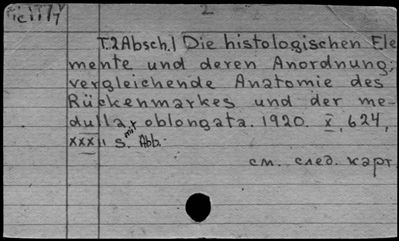 2
T.2 Absch.1 Die histologischen Ele
mente und deren Anordnung;
vergleichende Anatomie des
Rückenmarkes und der me-
dulla oblongata. 1920. X, 624,
XXXII S. mit Abb.
см. след. карт